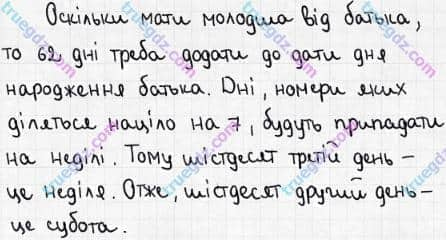 Оскільки мати молодша від батька,
то 62 дні треба додати до дати дня
народження батька. Дні, номери яких
діляться націло на 7, будуть припадати
на неділі. Тому шістдесят третій день –
це неділя. Отже, шістдесят другий день –
це субота.